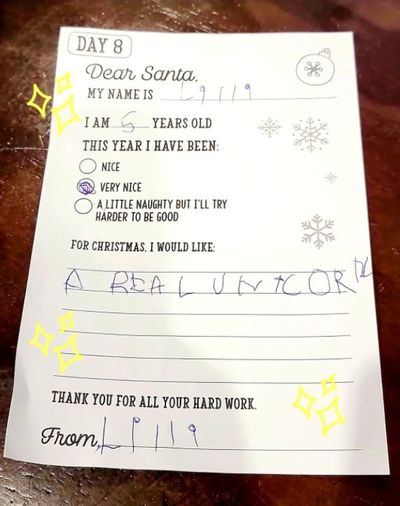 DAY 8
Dear Santa,
MY NAME IS Lilli
I AM 5 YEARS OLD
THIS YEAR I HAVE BEEN:
NICE
VERY NICE
A LITTLE NAUGHTY BUT I'LL TRY
HARDER TO BE GOOD
FOR CHRISTMAS, I WOULD LIKE:
A REAL UNICORN
THANK YOU FOR ALL YOUR HARD WORK.
From, Lilli